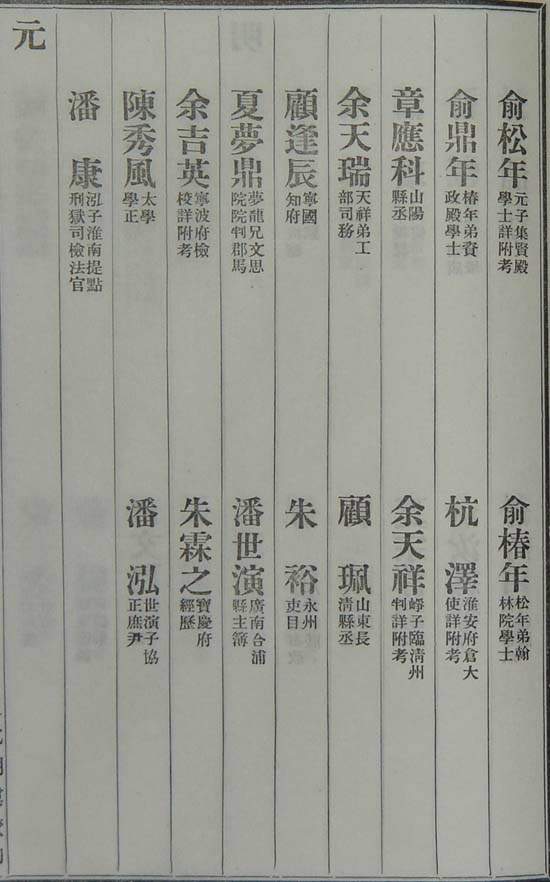 俞松年 元子集賢殿學士詳附考 俞椿年 松年弟翰林院學士
俞鼎年 椿年弟資政殿學士 杭澤 淮安府倉大使詳附考
章應科 山陽縣丞 余天祥 崢子臨淸州判詳附考
余天瑞 天祥弟工部司務 顧珮 山東長淸縣丞
顧逢辰 寧國知府 朱裕 永州吏目
夏夢鼎 夢龍兄文思院院判郡馬 潘世演 廣南合浦縣主簿
余吉英 寧波府檢校詳附考 朱霖之 寶慶府經歷
陳秀風 太學學正 潘泓 世演子協正庶尹
潘康 泓子淮南提點刑獄司檢法官
元